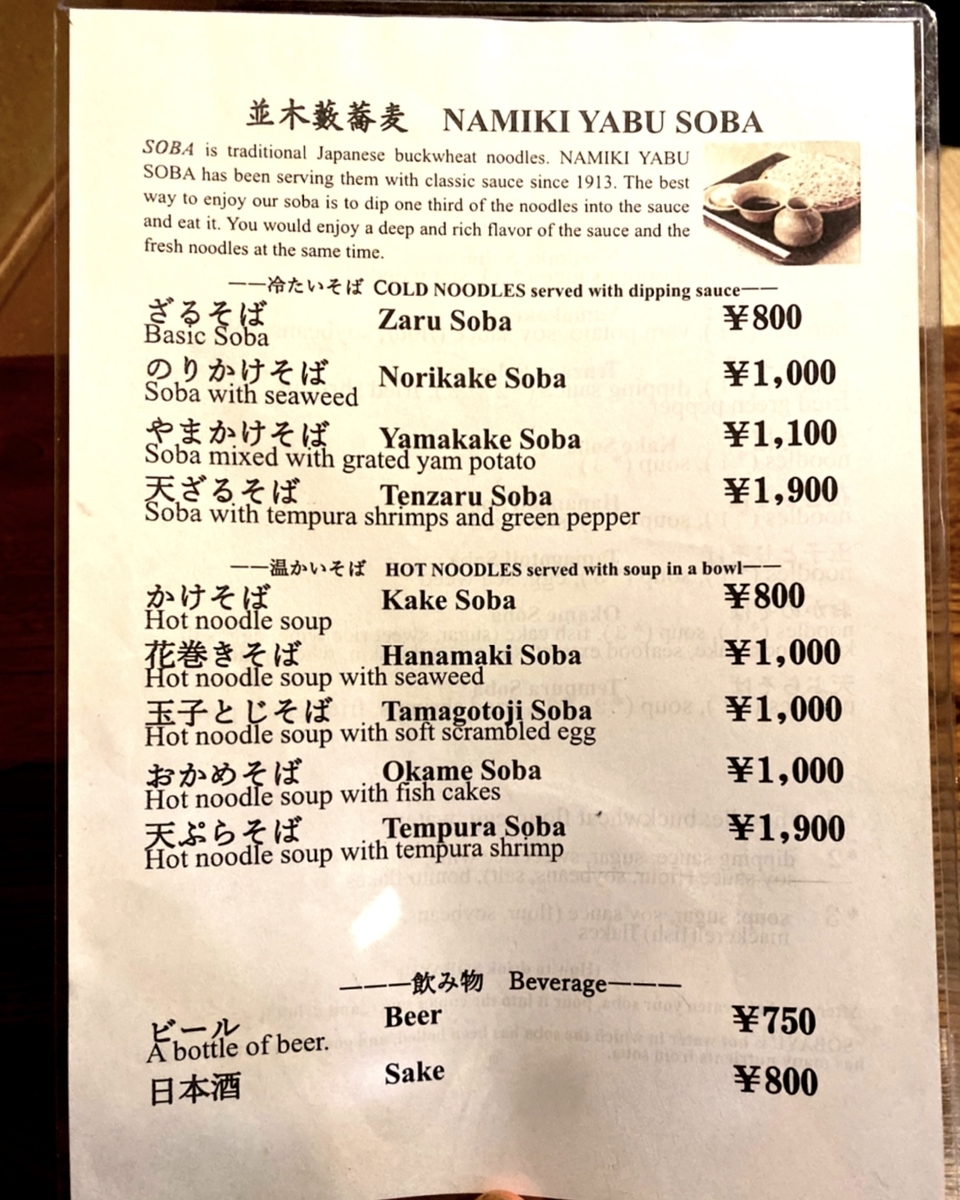 並木藪蕎麦 NAMIKI YABU SOBA
SOBA is traditional Japanese buckwheat noodles. NAMIKI YABU
SOBA has been serving them with classic sauce since 1913. The best
way to enjoy our soba is to dip one third of the noodles into the sauce
and eat it. You would enjoy a deep and rich flavor of the sauce and the
fresh noodles at the same time.
——冷たいそば COLD NOODLES served with dipping sauce——
ざるそば Zaru Soba ¥800
Basic Soba
のりかけそば Norikake Soba ¥1,000
Soba with seaweed
やまかけそば Yamakake Soba ¥1,100
Soba mixed with grated yam potato
天ざるそば Tenzaru Soba ¥1,900
Soba with tempura shrimps and green pepper
——温かいそば HOT NOODLES served with soup in a bowl——
かけそば Kake Soba ¥800
Hot noodle soup
花巻きそば Hanamaki Soba ¥1,000
Hot noodle soup with seaweed
玉子とじそば Tamagotoji Soba ¥1,000
Hot noodle soup with soft scrambled egg
おかめそば Okame Soba ¥1,000
Hot noodle soup with fish cakes
天ぷらそば Tempura Soba ¥1,900
Hot noodle soup with tempura shrimp
———飲み物 Beverage———
ビール Beer ¥750
A bottle of beer.
日本酒 Sake ¥800